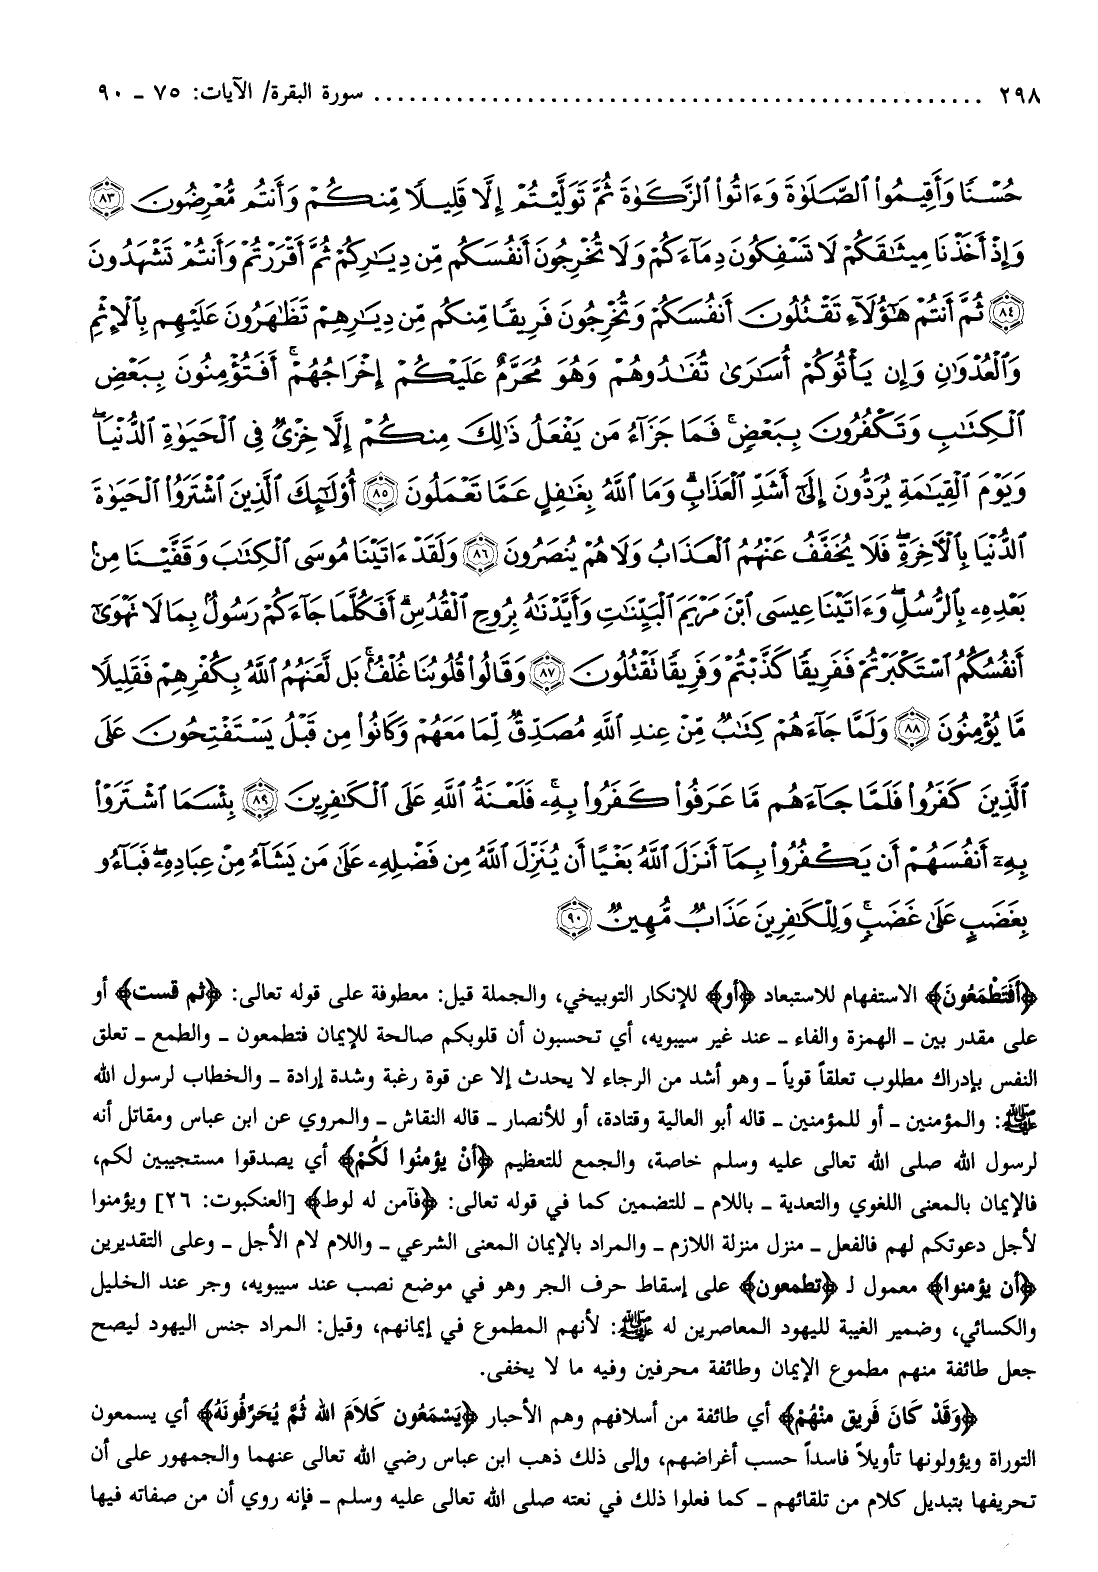 ٢٩٨ ................................................ سورة البقرة/ الآيات: ٧٥ ـ ٩٠
حُسْنًا وَأَقِيمُوا۟ ٱلصَّلَوٰةَ وَءَاتُوا۟ ٱلزَّكَوٰةَ ثُمَّ تَوَلَّيْتُمْ إِلَّا قَلِيلًا مِّنكُمْ وَأَنتُم مُّعْرِضُونَ ۝٨٣
وَإِذْ أَخَذْنَا مِيثَٰقَكُمْ لَا تَسْفِكُونَ دِمَآءَكُمْ وَلَا تُخْرِجُونَ أَنفُسَكُم مِّن دِيَٰرِكُمْ ثُمَّ أَقْرَرْتُمْ وَأَنتُمْ تَشْهَدُونَ
۝٨٤ ثُمَّ أَنتُمْ هَٰٓؤُلَآءِ تَقْتُلُونَ أَنفُسَكُمْ وَتُخْرِجُونَ فَرِيقًا مِّنكُم مِّن دِيَٰرِهِمْ تَظَٰهَرُونَ عَلَيْهِم بِٱلْإِثْمِ
وَٱلْعُدْوَٰنِ وَإِن يَأْتُوكُمْ أُسَٰرَىٰ تُفَٰدُوهُمْ وَهُوَ مُحَرَّمٌ عَلَيْكُمْ إِخْرَاجُهُمْ ۚ أَفَتُؤْمِنُونَ بِبَعْضِ
ٱلْكِتَٰبِ وَتَكْفُرُونَ بِبَعْضٍ ۚ فَمَا جَزَآءُ مَن يَفْعَلُ ذَٰلِكَ مِنكُمْ إِلَّا خِزْىٌ فِى ٱلْحَيَوٰةِ ٱلدُّنْيَا ۖ
وَيَوْمَ ٱلْقِيَٰمَةِ يُرَدُّونَ إِلَىٰٓ أَشَدِّ ٱلْعَذَابِ ۗ وَمَا ٱللَّهُ بِغَٰفِلٍ عَمَّا تَعْمَلُونَ ۝٨٥ أُو۟لَٰٓئِكَ ٱلَّذِينَ ٱشْتَرَوُا۟ ٱلْحَيَوٰةَ
ٱلدُّنْيَا بِٱلْأَخِرَةِ ۖ فَلَا يُخَفَّفُ عَنْهُمُ ٱلْعَذَابُ وَلَا هُمْ يُنصَرُونَ ۝٨٦ وَلَقَدْ ءَاتَيْنَا مُوسَى ٱلْكِتَٰبَ وَقَفَّيْنَا مِنۢ
بَعْدِهِۦ بِٱلرُّسُلِ ۖ وَءَاتَيْنَا عِيسَى ٱبْنَ مَرْيَمَ ٱلْبَيِّنَٰتِ وَأَيَّدْنَٰهُ بِرُوحِ ٱلْقُدُسِ ۗ أَفَكُلَّمَا جَآءَكُمْ رَسُولٌۢ بِمَا لَا تَهْوَىٰٓ
أَنفُسُكُمُ ٱسْتَكْبَرْتُمْ فَفَرِيقًا كَذَّبْتُمْ وَفَرِيقًا تَقْتُلُونَ ۝٨٧ وَقَالُوا۟ قُلُوبُنَا غُلْفٌۢ ۚ بَل لَّعَنَهُمُ ٱللَّهُ بِكُفْرِهِمْ فَقَلِيلًا
مَّا يُؤْمِنُونَ ۝٨٨ وَلَمَّا جَآءَهُمْ كِتَٰبٌ مِّنْ عِندِ ٱللَّهِ مُصَدِّقٌ لِّمَا مَعَهُمْ وَكَانُوا۟ مِن قَبْلُ يَسْتَفْتِحُونَ عَلَى
ٱلَّذِينَ كَفَرُوا۟ فَلَمَّا جَآءَهُم مَّا عَرَفُوا۟ كَفَرُوا۟ بِهِۦ ۚ فَلَعْنَةُ ٱللَّهِ عَلَى ٱلْكَٰفِرِينَ ۝٨٩ بِئْسَمَا ٱشْتَرَوْا۟
بِهِۦٓ أَنفُسَهُمْ أَن يَكْفُرُوا۟ بِمَآ أَنزَلَ ٱللَّهُ بَغْيًا أَن يُنَزِّلَ ٱللَّهُ مِن فَضْلِهِۦ عَلَىٰ مَن يَشَآءُ مِنْ عِبَادِهِۦ ۖ فَبَآءُو
بِغَضَبٍ عَلَىٰ غَضَبٍ ۚ وَلِلْكَٰفِرِينَ عَذَابٌ مُّهِينٌ ۝٩٠
﴿أَفَتَطْمَعُونَ﴾ الاستفهام للاستبعاد ﴿أو﴾ للإنكار التوبيخي، والجملة قيل: معطوفة على قوله تعالى: ﴿ثم قست﴾ أو
على مقدر بين ـ الهمزة والفاء ـ عند غير سيبويه، أي تحسبون أن قلوبكم صالحة للإيمان فتطمعون ـ والطمع ـ تعلق
النفس بإدراك مطلوب تعلقاً قوياً ـ وهو أشد من الرجاء لا يحدث إلا عن قوة رغبة وشدة إرادة ـ والخطاب لرسول الله
ﷺ: والمؤمنين ـ أو للمؤمنين ـ قاله أبو العالية وقتادة، أو للأنصار ـ قاله النقاش ـ والمروي عن ابن عباس ومقاتل أنه
لرسول الله صلى الله تعالى عليه وسلم خاصة، والجمع للتعظيم ﴿أَنْ يؤمنُوا لَكُمْ﴾ أي يصدقوا مستجيبين لكم،
فالإيمان بالمعنى اللغوي والتعدية ـ باللام ـ للتضمين كما في قوله تعالى: ﴿فآمن له لوط﴾ [العنكبوت: ٢٦] ويؤمنوا
لأجل دعوتكم لهم فالفعل ـ منزل منزلة اللازم ـ والمراد بالإيمان المعنى الشرعي ـ واللام لام الأجل ـ وعلى التقديرين
﴿أن يؤمنوا﴾ معمول لـ ﴿تطمعون﴾ على إسقاط حرف الجر وهو في موضع نصب عند سيبويه، وجر عند الخليل
والكسائي، وضمير الغيبة لليهود المعاصرين له ﷺ: لأنهم المطموع في إيمانهم، وقيل: المراد جنس اليهود ليصح
جعل طائفة منهم مطموع الإيمان وطائفة محرفين وفيه ما لا يخفى.
﴿وَقَدْ كَانَ فَرِيق منهُمْ﴾ أي طائفة من أسلافهم وهم الأحبار ﴿يَسْمَعُون كَلاَمَ الله ثُمَّ يُحَرِّفُونَهُ﴾ أي يسمعون
التوراة ويؤولونها تأويلاً فاسداً حسب أغراضهم، وإلى ذلك ذهب ابن عباس رضي الله تعالى عنهما والجمهور على أن
تحريفها بتبديل كلام من تلقائهم ـ كما فعلوا ذلك في نعته صلى الله تعالى عليه وسلم ـ فإنه روي أن من صفاته فيها